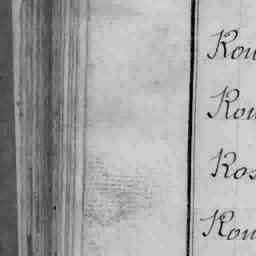 Rou
Rou
Ros
Rou